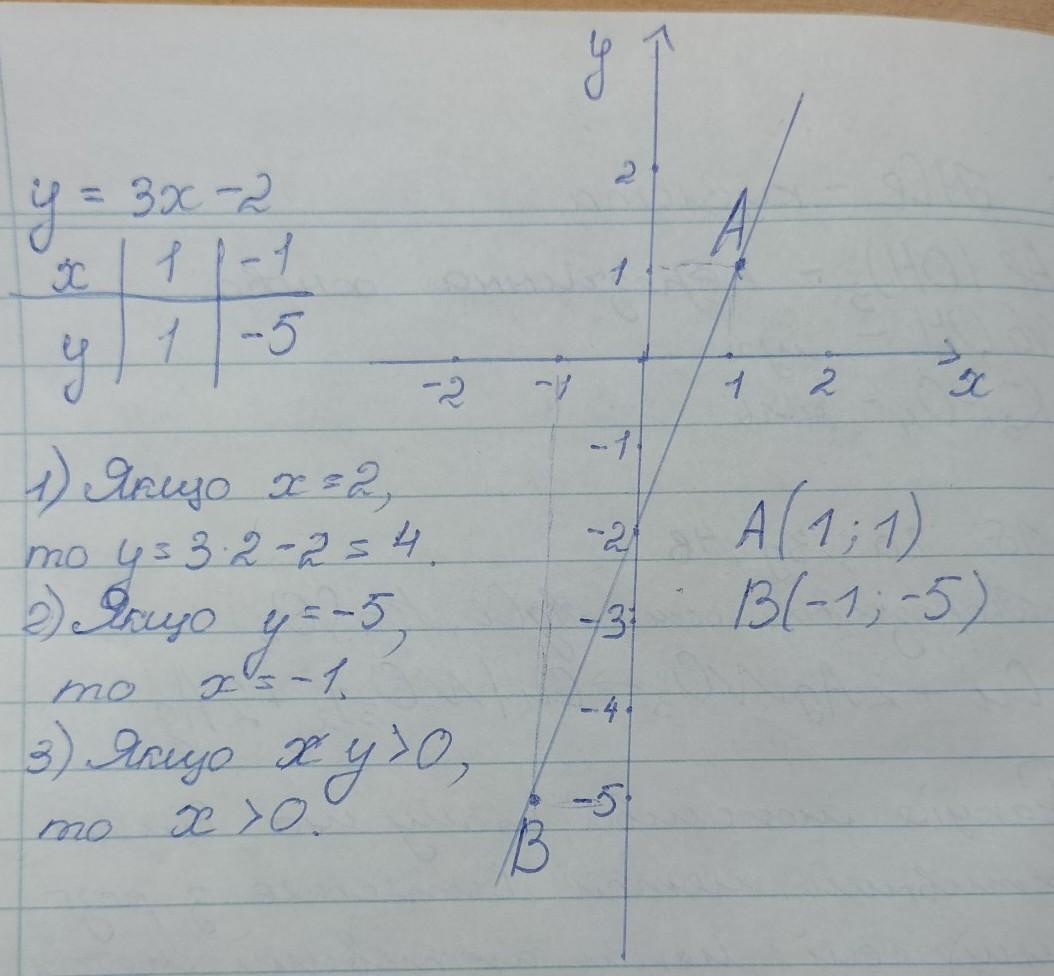 y = 3x - 2
x | 1 | -1
y | 1 | -5
1) Якщо x = 2,
то y = 3·2 - 2 = 4.
2) Якщо y = -5,
то x = -1.
3) Якщо x y > 0,
то x > 0.
y
2
A
1
-2 -1 1 2 x
-1
-2
-3
-4
-5
B
A(1; 1)
B(-1; -5)